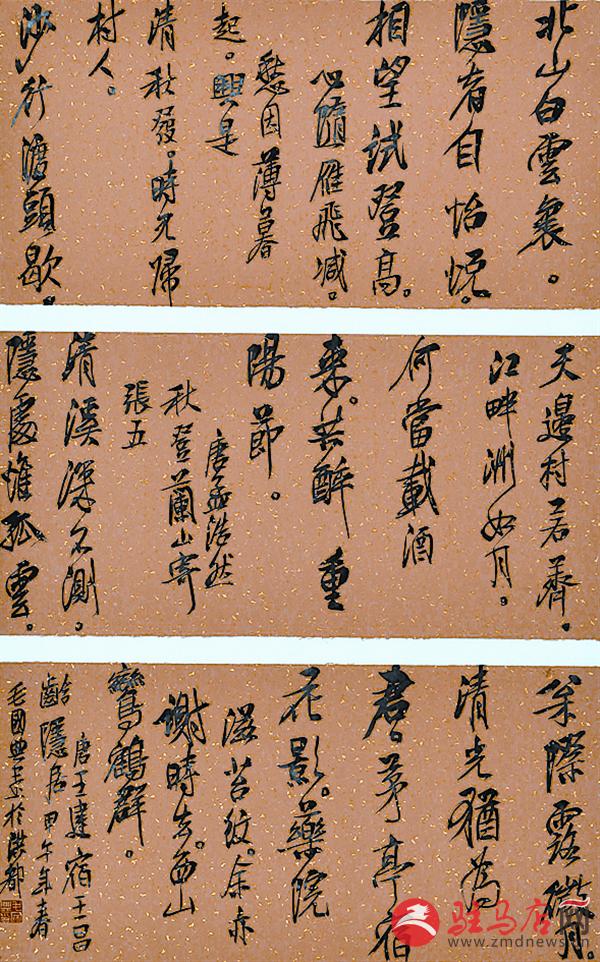 北山白雲裏。
隱者自怡悦。
相望試登高。
心隨雁飛减。
愁因薄暮
起。興是
清秋發。時見歸
村人。
沙行渡頭歇。
天邊村若薺。
江畔洲如月。
何當載酒
来。共醉重
陽節。
唐孟浩然
秋登蘭山寄
張五
清溪深不測。
隱處惟孤雲。
枀際露微月。
清光猶為
君。茅亭宿
花影。藥院
滋苔紋。余亦
謝時去。西山
鸞鶴群。
唐王建宿王昌
齡隱居甲午年春
毛國典書於洪都
驻马店网
www.zmdnews.cn